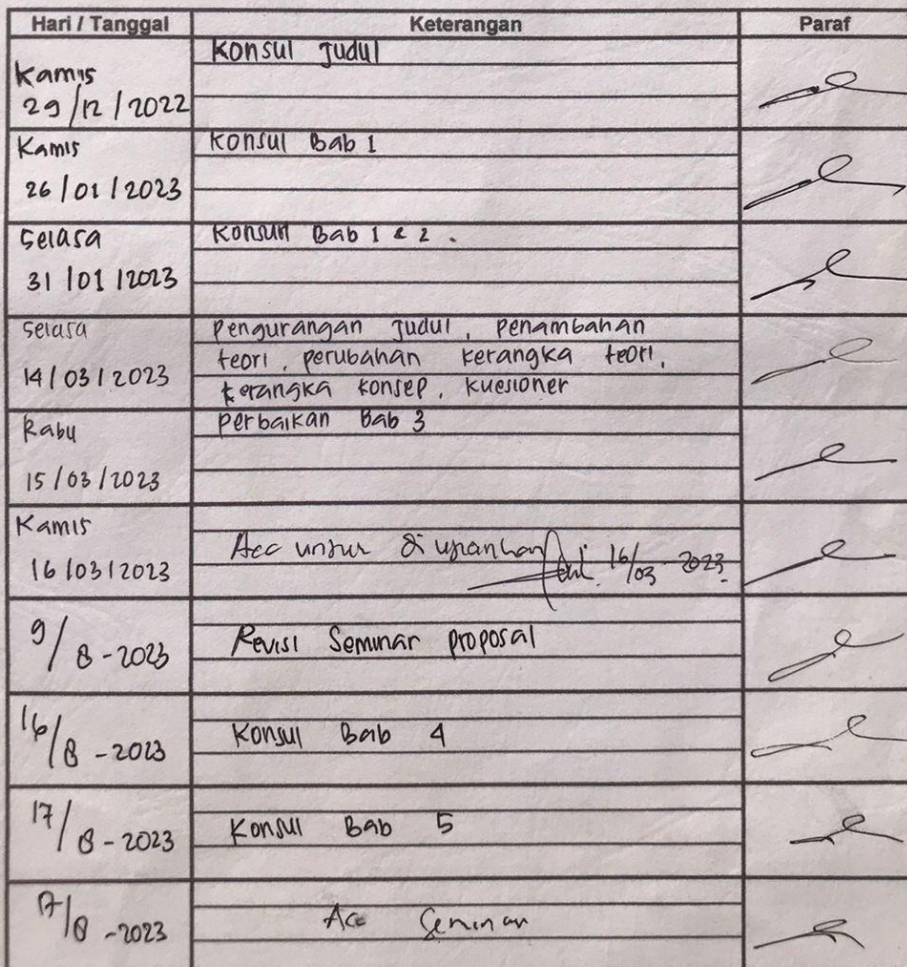 Hari / Tanggal Keterangan Paraf
Kamis
29/12/2022
Konsul Judul
Kamis
26/01/2023
Konsul Bab 1
Selasa
31/01/2023
Konsul Bab 1 & 2.
Selasa
14/03/2023
Pengurangan Judul, penambahan
teori, perubahan kerangka teori,
kerangka konsep, kuesioner
Rabu
15/03/2023
Perbaikan Bab 3
Kamis
16/03/2023
Acc untuk diujiankan 16/03 2023
9/8-2023
Revisi Seminar proposal
16/8-2023
Konsul Bab 4
17/8-2023
Konsul Bab 5
17/8-2023
Acc Seminar